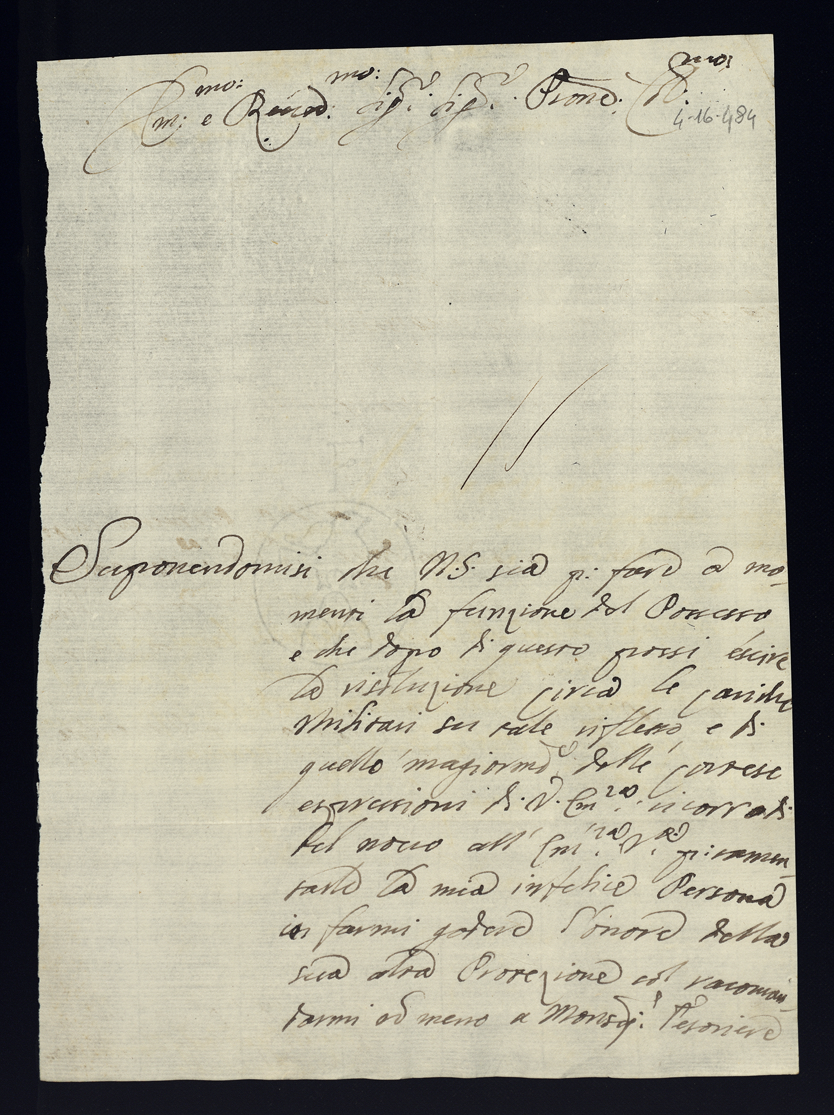 Em:mo: e Reverd:mo: Sig:r Sig:r Prone: C:mo:
4-16-484
Suponendomisi che N.S. sia p: fare a mo-
menti la funzione del Possesso
e che dopo di questo possi escire
la risoluzione circa le cariche
Militari su tale riflesso, e di
quello magiorm:e delle cortese
espressioni di V. Em:za ricorro di
del novo all' Em:za V:a p: ramen-
tarle la mia infelice Persona
in farmi godere l'onore della
sua alta Protezione col racoman-
darmi od meno a Monsig:r Tesoriere